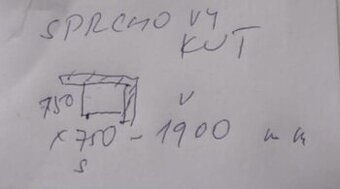 SPRCHOVÝ
KUT
750
V
x 750 - 1900 mm
S